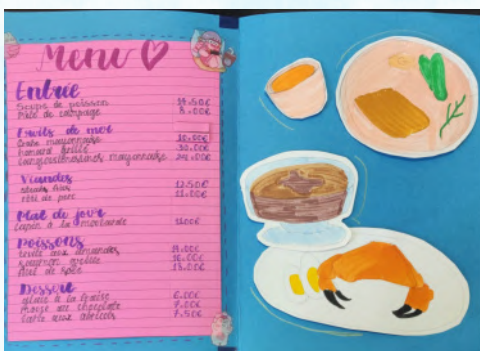 Menu
Entrée
Soupe de poisson 14.50€
Pâté de campagne 8.00€
Fruits de mer
Crabe mayonnaise
Homard grillé 30.00€
Langoustines mayonnaise 24.00€
Viandes
12.50€
rôti de porc 11.00€
Plat du jour
Lapin à la moutarde
Poissons
truite aux amandes
saumon grillé
13.00€
Dessert
glace à la fraise 6.00€
Mousse au chocolat 7.00€
tarte aux abricots 7.50€